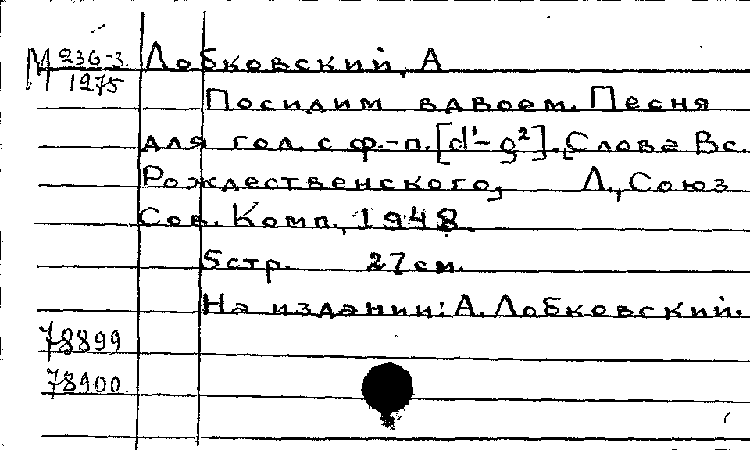 М 236-3 Лобковский, А
1275
Посидим вдвоем. Песня
для гол. с ф.-п. [d¹-g²]. Слова Вс.
Рождественского, Л., Союз
Сов. Комп., 1948.
5 стр. 27 см.
На издании: А. Лобковский.
78899
78900